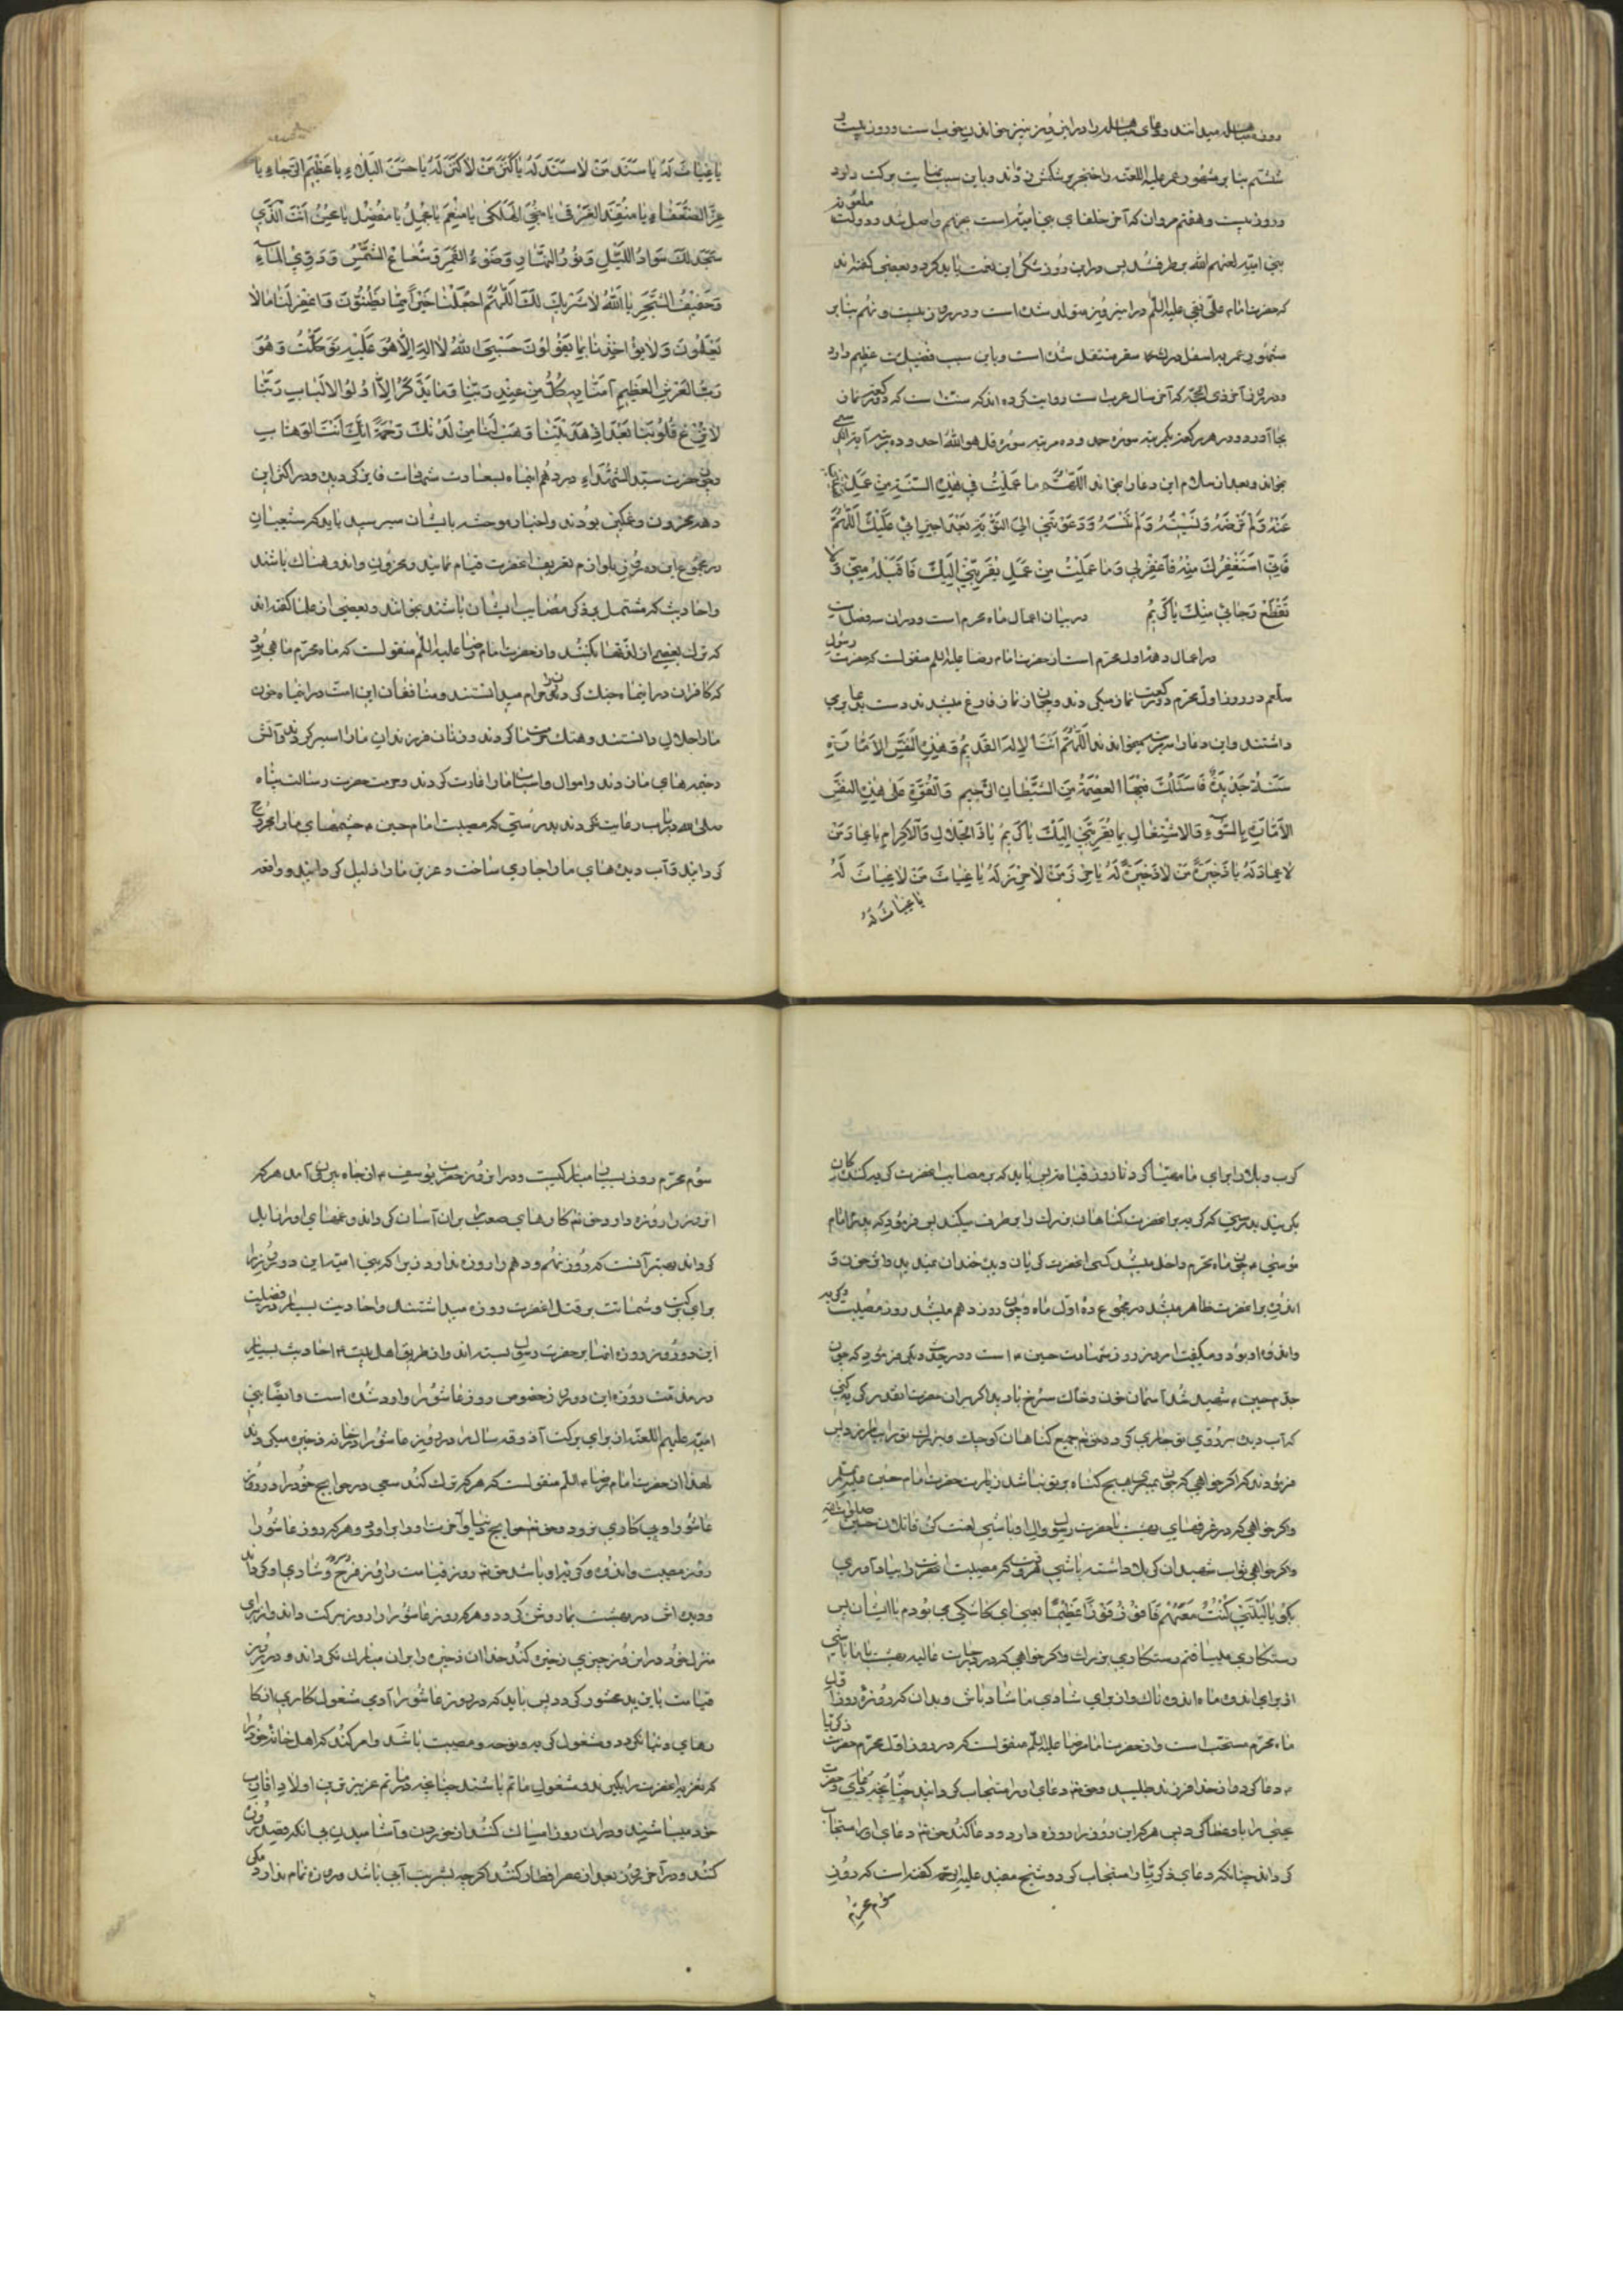 روز مباهله میدانند و دعای مباهله را در این روز نیز خواندن خوب است و روز بیست و
ششم بنا بر مشهور عمر علیه اللعنه را خنجر بر شکمش زدند و باین سبب نهایت برکت دارد
و روز بیست و هفتم مروان که آخر خلفای بنی امیه است بجهنم واصل شد و دولت ملعونه
بنی امیه لعنهم الله برطرف شد پس در این روز شکر این نعمت باید کرد و بعضی گفته‌اند
که حضرت امام علی نقی علیه السلم در این روز متولد شده است و در روز بیست و نهم بنا بر
مشهور عمر به اسفل درک سقر منتقل شده است و باین سبب فضیلت عظیم دارد
و در روز آخر ذی الحجه که آخر سال عرب است روایت کرده‌اند که سنت است که دو رکعت نماز
بجا آورد و در هر رکعت یکمرتبه سوره حمد و ده مرتبه سوره قل هو الله احد و ده مرتبه آیة الکرسی
بخواند و بعد از سلام این دعا را بخواند اللهم ما عملت فی هذه السنة من عمل نهیتنی
عنه و لم ترضه و نسیته و لم تنسه و دعوتنی الی التوبة بعد اجترائی علیک اللهم
فانی استغفرک منه فاغفر لی و ما عملت من عمل یقربنی الیک فاقبله منی و لا
تقطع رجائی منک یا کریم در بیان اعمال ماه محرم است و در آن سه فصل است
در اعمال دهه اول محرم است از حضرت امام رضا علیه السلم منقولست که حضرت رسول
صلعم در روز اول محرم دو رکعت نماز میکردند و چون از نماز فارغ میشدند دست بدعا بر می
داشتند و این دعا را سه مرتبه میخواندند اللهم انت الاله القدیم و هذه
سنة جدیدة فاسئلک فیها العصمة من الشیطان الرجیم و القوة علی هذه النفس
الامارة بالسوء و الاشتغال بما یقربنی الیک یا کریم یا ذا الجلال و الاکرام یا عماد من
لا عماد له یا ذخیرة من لا ذخیرة له یا حرز من لا حرز له یا غیاث من لا غیاث له
یا غیاث له
یا غیاث له یا سند من لا سند له یا کنز من لا کنز له یا حسن البلاء یا عظیم الرجاء یا
عز الضعفاء یا منقذ الغرقی یا منجی الهلکی یا منعم یا مجمل یا مفضل یا محسن انت الذی
سجد لک سواد اللیل و نور النهار و ضوء القمر و شعاع الشمس و دوی الماء
و حفیف الشجر یا الله لا شریک لک اللهم اجعلنا خیرا مما یظنون و اغفر لنا ما لا
یعلمون و لا تؤاخذنا بما یقولون حسبی الله لا اله الا هو علیه توکلت و هو
رب العرش العظیم آمنا به کل من عند ربنا و ما یذکر الا اولو الالباب ربنا
لا تزغ قلوبنا بعد اذ هدیتنا و هب لنا من لدنک رحمة انک انت الوهاب
و چون حضرت سید الشهداء در دهم این ماه بسعادت شهادت فایز گردید و در اکثر این
دهه محزون و غمگین بودند و اخبار موحشه بایشان میرسید باید که شیعیان
در مجموع این دهه بلوازم تعزیه آنحضرت قیام نمایند و محزون و اندوهناک باشند
و احادیث که مشتمل بر ذکر مصایب ایشان باشند بخوانند و بعضی از علما گفته‌اند
که ترک بعضی از لذتها بکنند و از حضرت امام رضا علیه السلم منقولست که ماه محرم ماهی بود
که کافران در این ماه جنگ کردن را حرام میدانستند و منافقان این امت در این ماه خون
ما را حلال دانستند و هتک حرمت ما کردند و زنان و فرزندان ما را اسیر کردند و آتش
در خیمه‌های ما زدند و اموال و اسباب ما را غارت کردند و حرمت حضرت رسالت پناه
صلی الله در باب ما رعایت نکردند بدرستی که مصیبت امام حسین ع چشمهای ما را مجروح
گردانید و آب دیده‌های ما را جاری ساخت و عزیز ما را ذلیل گردانید و واقعه
کرب و بلا را برای ما مهیا کرد تا روز قیامت پس باید که بر مصایب آنحضرت گریه کنند گریه کنندگان
بگریند بدرستی که گریه بر آنحضرت گناهان بزرگ را برطرف میکند پس فرمود که پدرم امام
موسی ع چون ماه محرم داخل میشد کسی آنحضرت را دیگر خندان نمیدید و حزن و
اندوه بر آنحضرت ظاهر میشد در مجموع ده اول ماه و چون روز دهم میشد روز مصیبت و گریه
و اندوه او بود و میگفت امروز روز شهادت حسین ع است و در حدیث دیگر فرمود که چون
جدم حسین ع شهید شد آسمان خون و خاک سرخ بارید اگر بر آن حضرت آنقدر گریه کنی
که آب دیده بر روی تو جاری گردد حق تع جمیع گناهان کوچک و بزرگ تو را بیامرزد پس
فرمودند که اگر خواهی که چون بمیری هیچ گناه بر تو نباشد زیارت حضرت امام حسین علیه السلم کن
و اگر خواهی که در غرفهای بهشت با حضرت رسول و آل او باشی لعنت کن قاتلان حسین صلوات الله علیه
و اگر خواهی ثواب شهیدان کربلا داشته باشی هر وقت که مصیبت آنحضرت را بیاد آوری
بگو یا لیتنی کنت معهم فافوز فوزا عظیما یعنی ای کاشکی می بودم با ایشان پس
رستگاری مییافتم رستگاری بزرگ و اگر خواهی که در درجات عالیه بهشت با ما باشی
از برای اندوه ما اندوهناک و از برای شادی ما شاد باش و بدان که روزه روز اول
ماه محرم مستحب است و از حضرت امام رضا علیه السلم منقولست که در روز اول محرم حضرت زکریا
ع دعا کرد و از خدا فرزند طلبید و حق تع دعای او را مستجاب گردانید چنانچه
یحیی را باو عطا کرد پس هر که این روز را روزه دارد و دعا کند حق تع دعای او را مستجاب
گرداند چنانکه دعای زکریا را مستجاب کرد و شیخ مفید علیه الرحمه گفته است که روز
سوم محرم
سوم محرم روز بسیار مبارکیست و در این روز حضرت یوسف ع از چاه بیرون آمد هر که
این روز را روزه دارد حق تع کارهای صعب را بر او آسان گرداند و غمهای او را زایل
گرداند و بهتر آنست که روز نهم و دهم را روزه ندارد زیرا که بنی امیه این دو روز را
برای برکت و شماتت بر قتل آنحضرت روزه میداشتند و احادیث بسیار در فضیلت
این دو روز و روزه آنها بر حضرت رسول بسته‌اند و از طریق اهل بیت ع احادیث بسیار
در مذمت روزه این دو روز خصوص روز عاشورا وارد شده است و ایضا بنی
امیه علیهم اللعنه از برای برکت آذوقه سال را در روز عاشورا در خانه ذخیره میکردند
لهذا از حضرت امام رضا علیه السلم منقولست که هر که ترک کند سعی در حوایج خود را در روز
عاشورا و پی کاری نرود حق تع حوایج دنیا و آخرت او را برآورد و هر که روز عاشورا
روز مصیبت و اندوه و گریه او باشد حق تع روز قیامت را روز فرح و سرور و شادی او گرداند
و دیده‌اش در بهشت بما روشن گردد و هر که روز عاشورا را روز برکت داند و از برای
منزل خود در این روز چیزی ذخیره کند خدا آن ذخیره را بر او مبارک نگرداند و در روز
قیامت با یزید محشور گردد پس باید که در روز عاشورا آدمی مشغول کاری از کا
رهای دنیا نگردد و مشغول گریه و نوحه و مصیبت باشد و امر کند که اهل خانه خود را
که تعزیه آنحضرت را بگیرند و مشغول ماتم باشند چنانچه در ماتم عزیزترین اولاد و اقارب
خود میباشند و در آن روز امساک کنند از خوردن و آشامیدن بی آنکه قصد روزه
کنند و در آخر روز بعد از عصر افطار کنند اگر چه بشربت آبی باشد و روزه تمام ندارد مگر